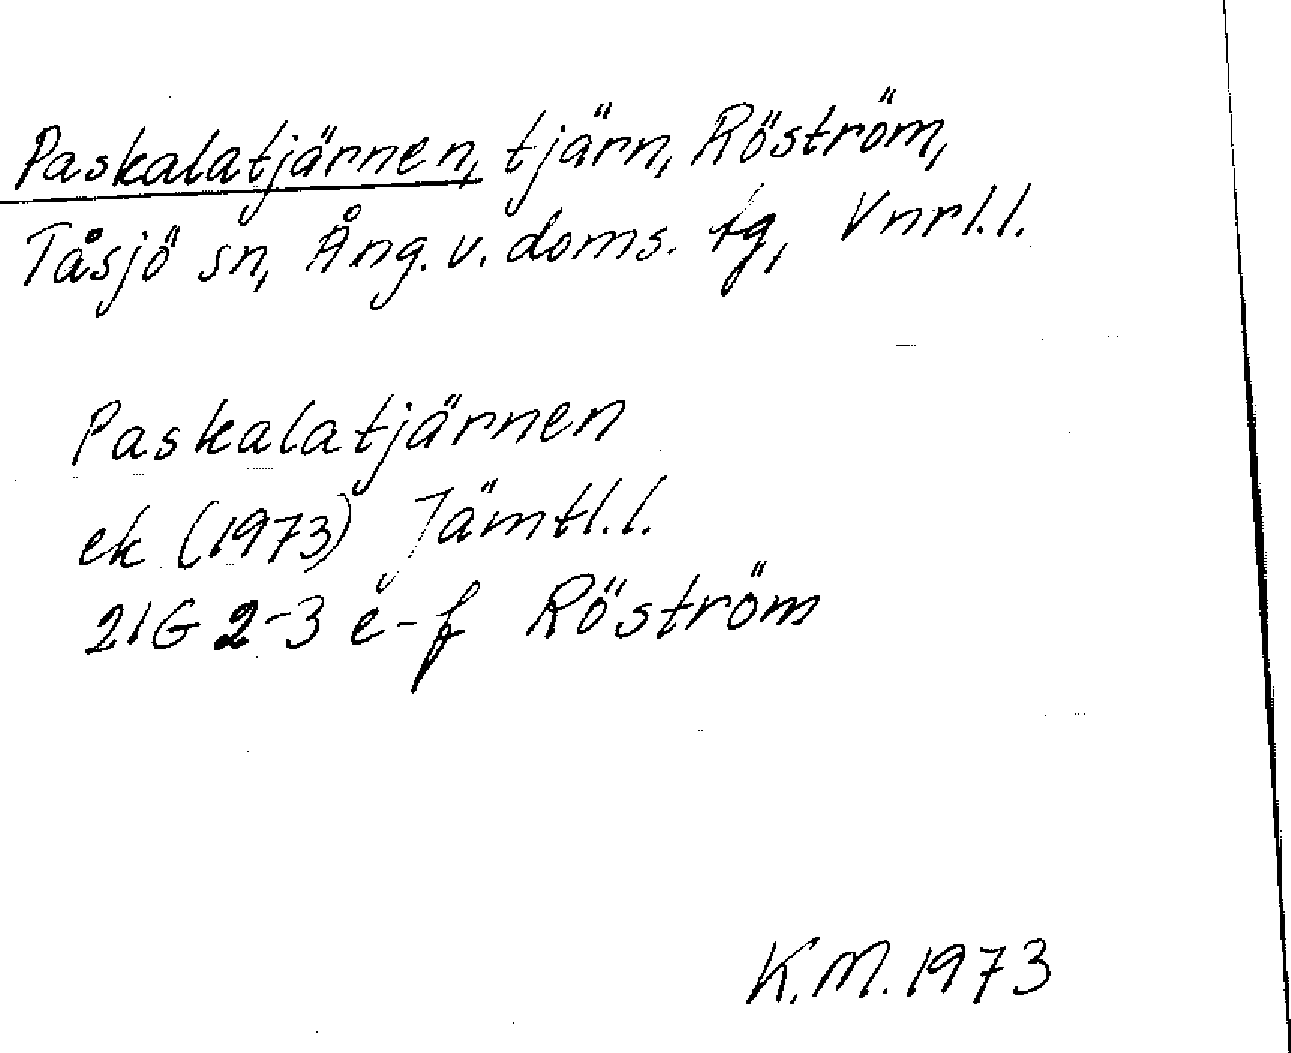 Paskalatjärnen, tjärn, Röström,
Tåsjö sn, Ång. v. doms. tg, Vnrl.l.
Paskalatjärnen
ek (1973) Jämtl.l.
21G 2-3 e-f Röström
K.M. 1973